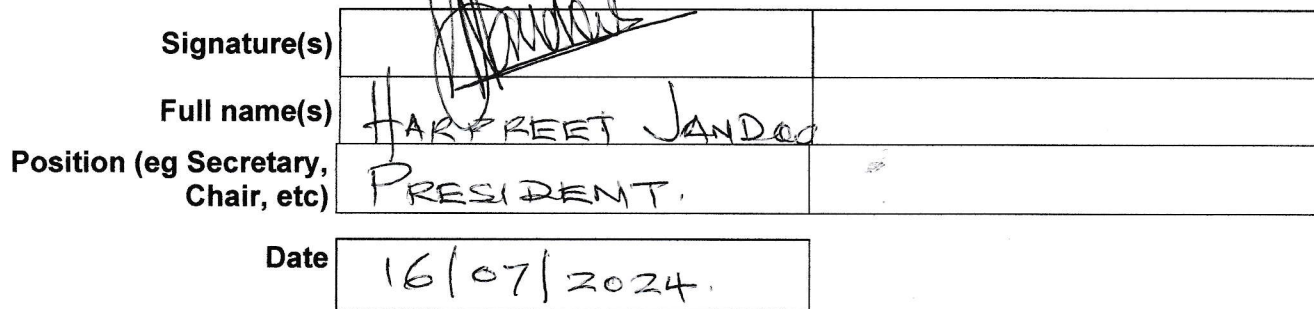 Signature(s)
Full name(s) HARPREET
Position (eg Secretary,
Chair, etc) PRESIDENT.
Date 16/07/2024.